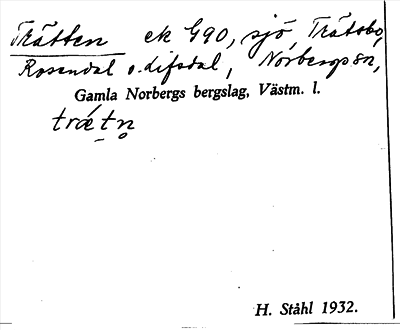 Trätten ek G90, sjö, Trätsbo,
Rosendal o. Lifsdal, Norbergs sn,
Gamla Norbergs bergslag, Västm. l.
trǽtn̥
H. Ståhl 1932.